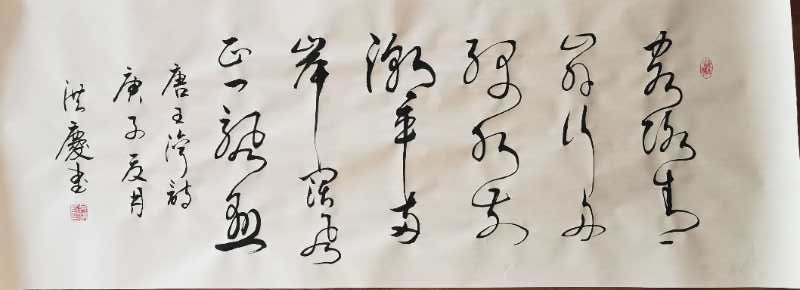 客路青
山外行舟
綠水前
潮平兩
岸闊風
正一帆懸
唐王灣詩
庚子夏月
洪慶書